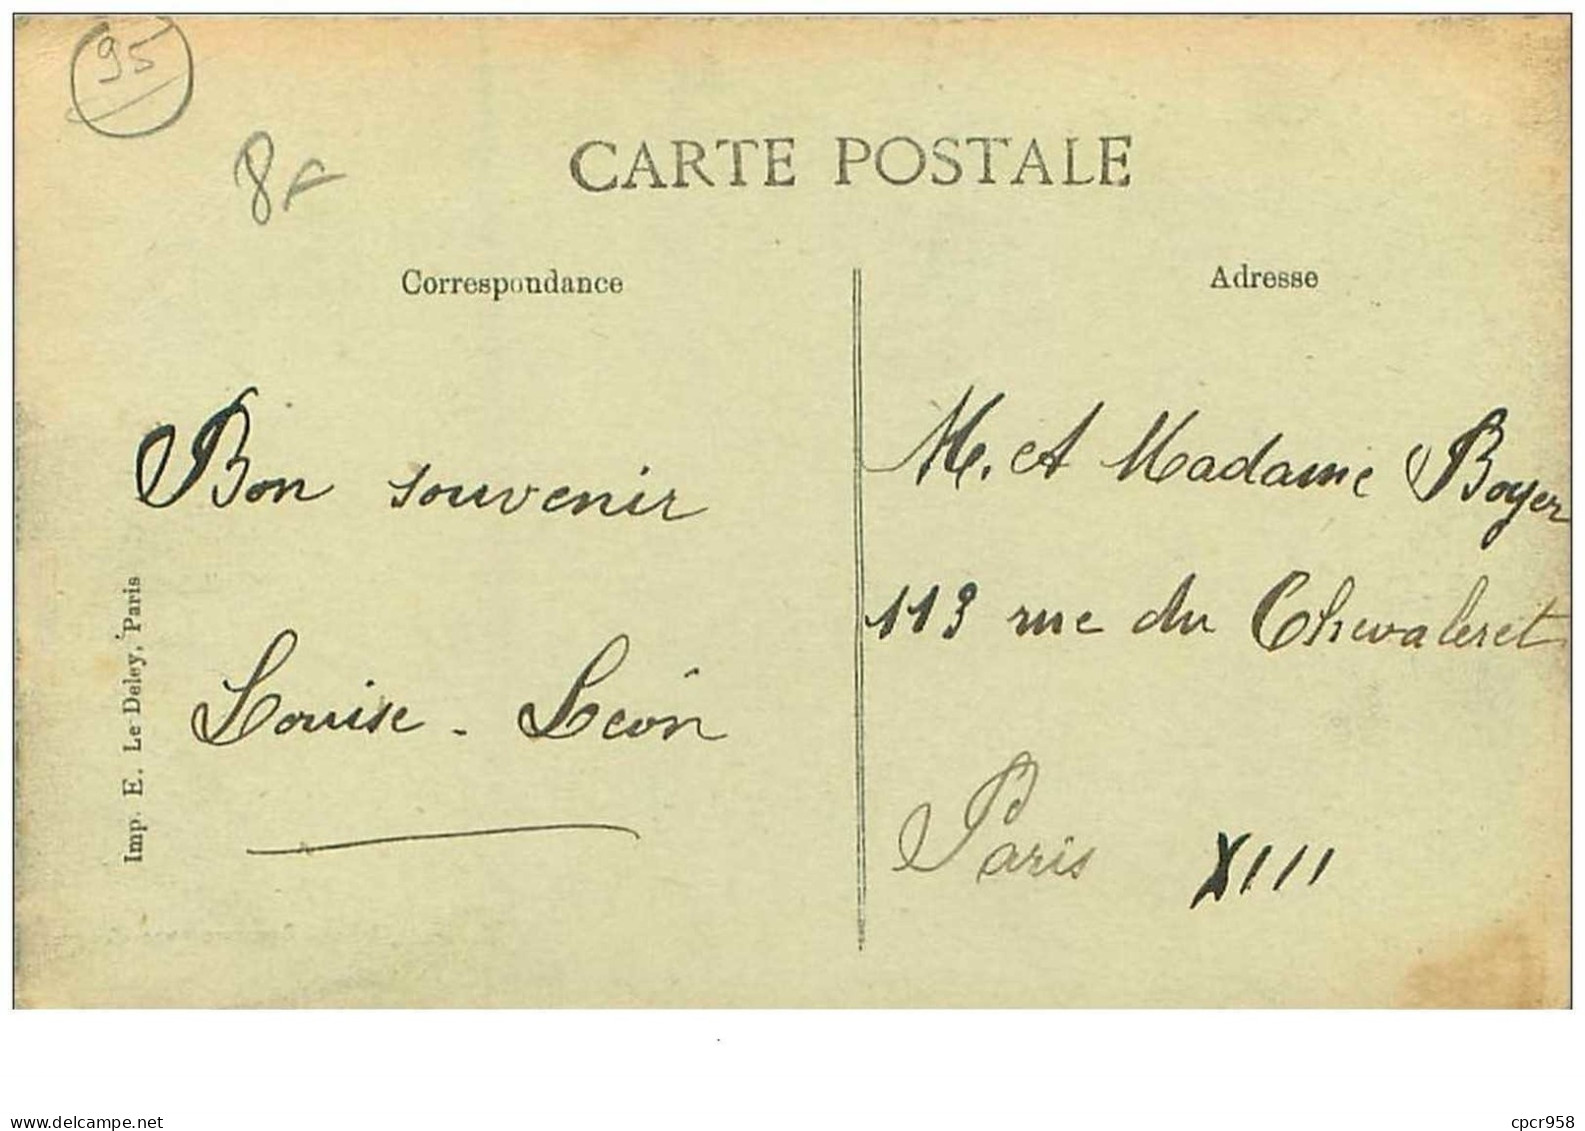 95
8F
CARTE POSTALE
Correspondance
Adresse
Bon souvenir
Louise - Léon
Imp. E. Le Deley, Paris
M. et Madame Boyer
113 rue du Chevaleret
Paris XIII
www.delcampe.net
cpcr958